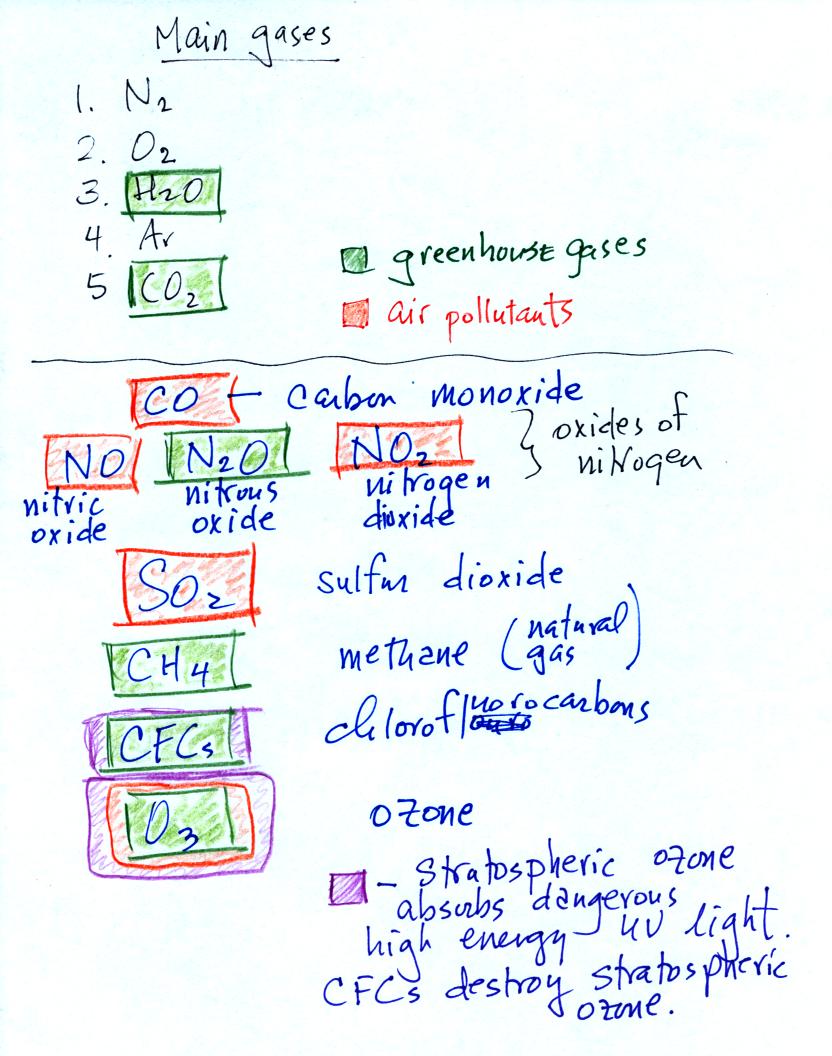 Main gases
1. N2
2. O2
3. H2O
4. Ar
5 CO2
greenhouse gases
air pollutants
CO – carbon monoxide
NO N2O NO2 } oxides of nitrogen
nitric oxide nitrous oxide nitrogen dioxide
SO2 sulfur dioxide
CH4 methane (natural gas)
CFCs chlorofluorocarbons
O3 ozone
– stratospheric ozone
absorbs dangerous
high energy UV light.
CFCs destroy stratospheric
ozone.